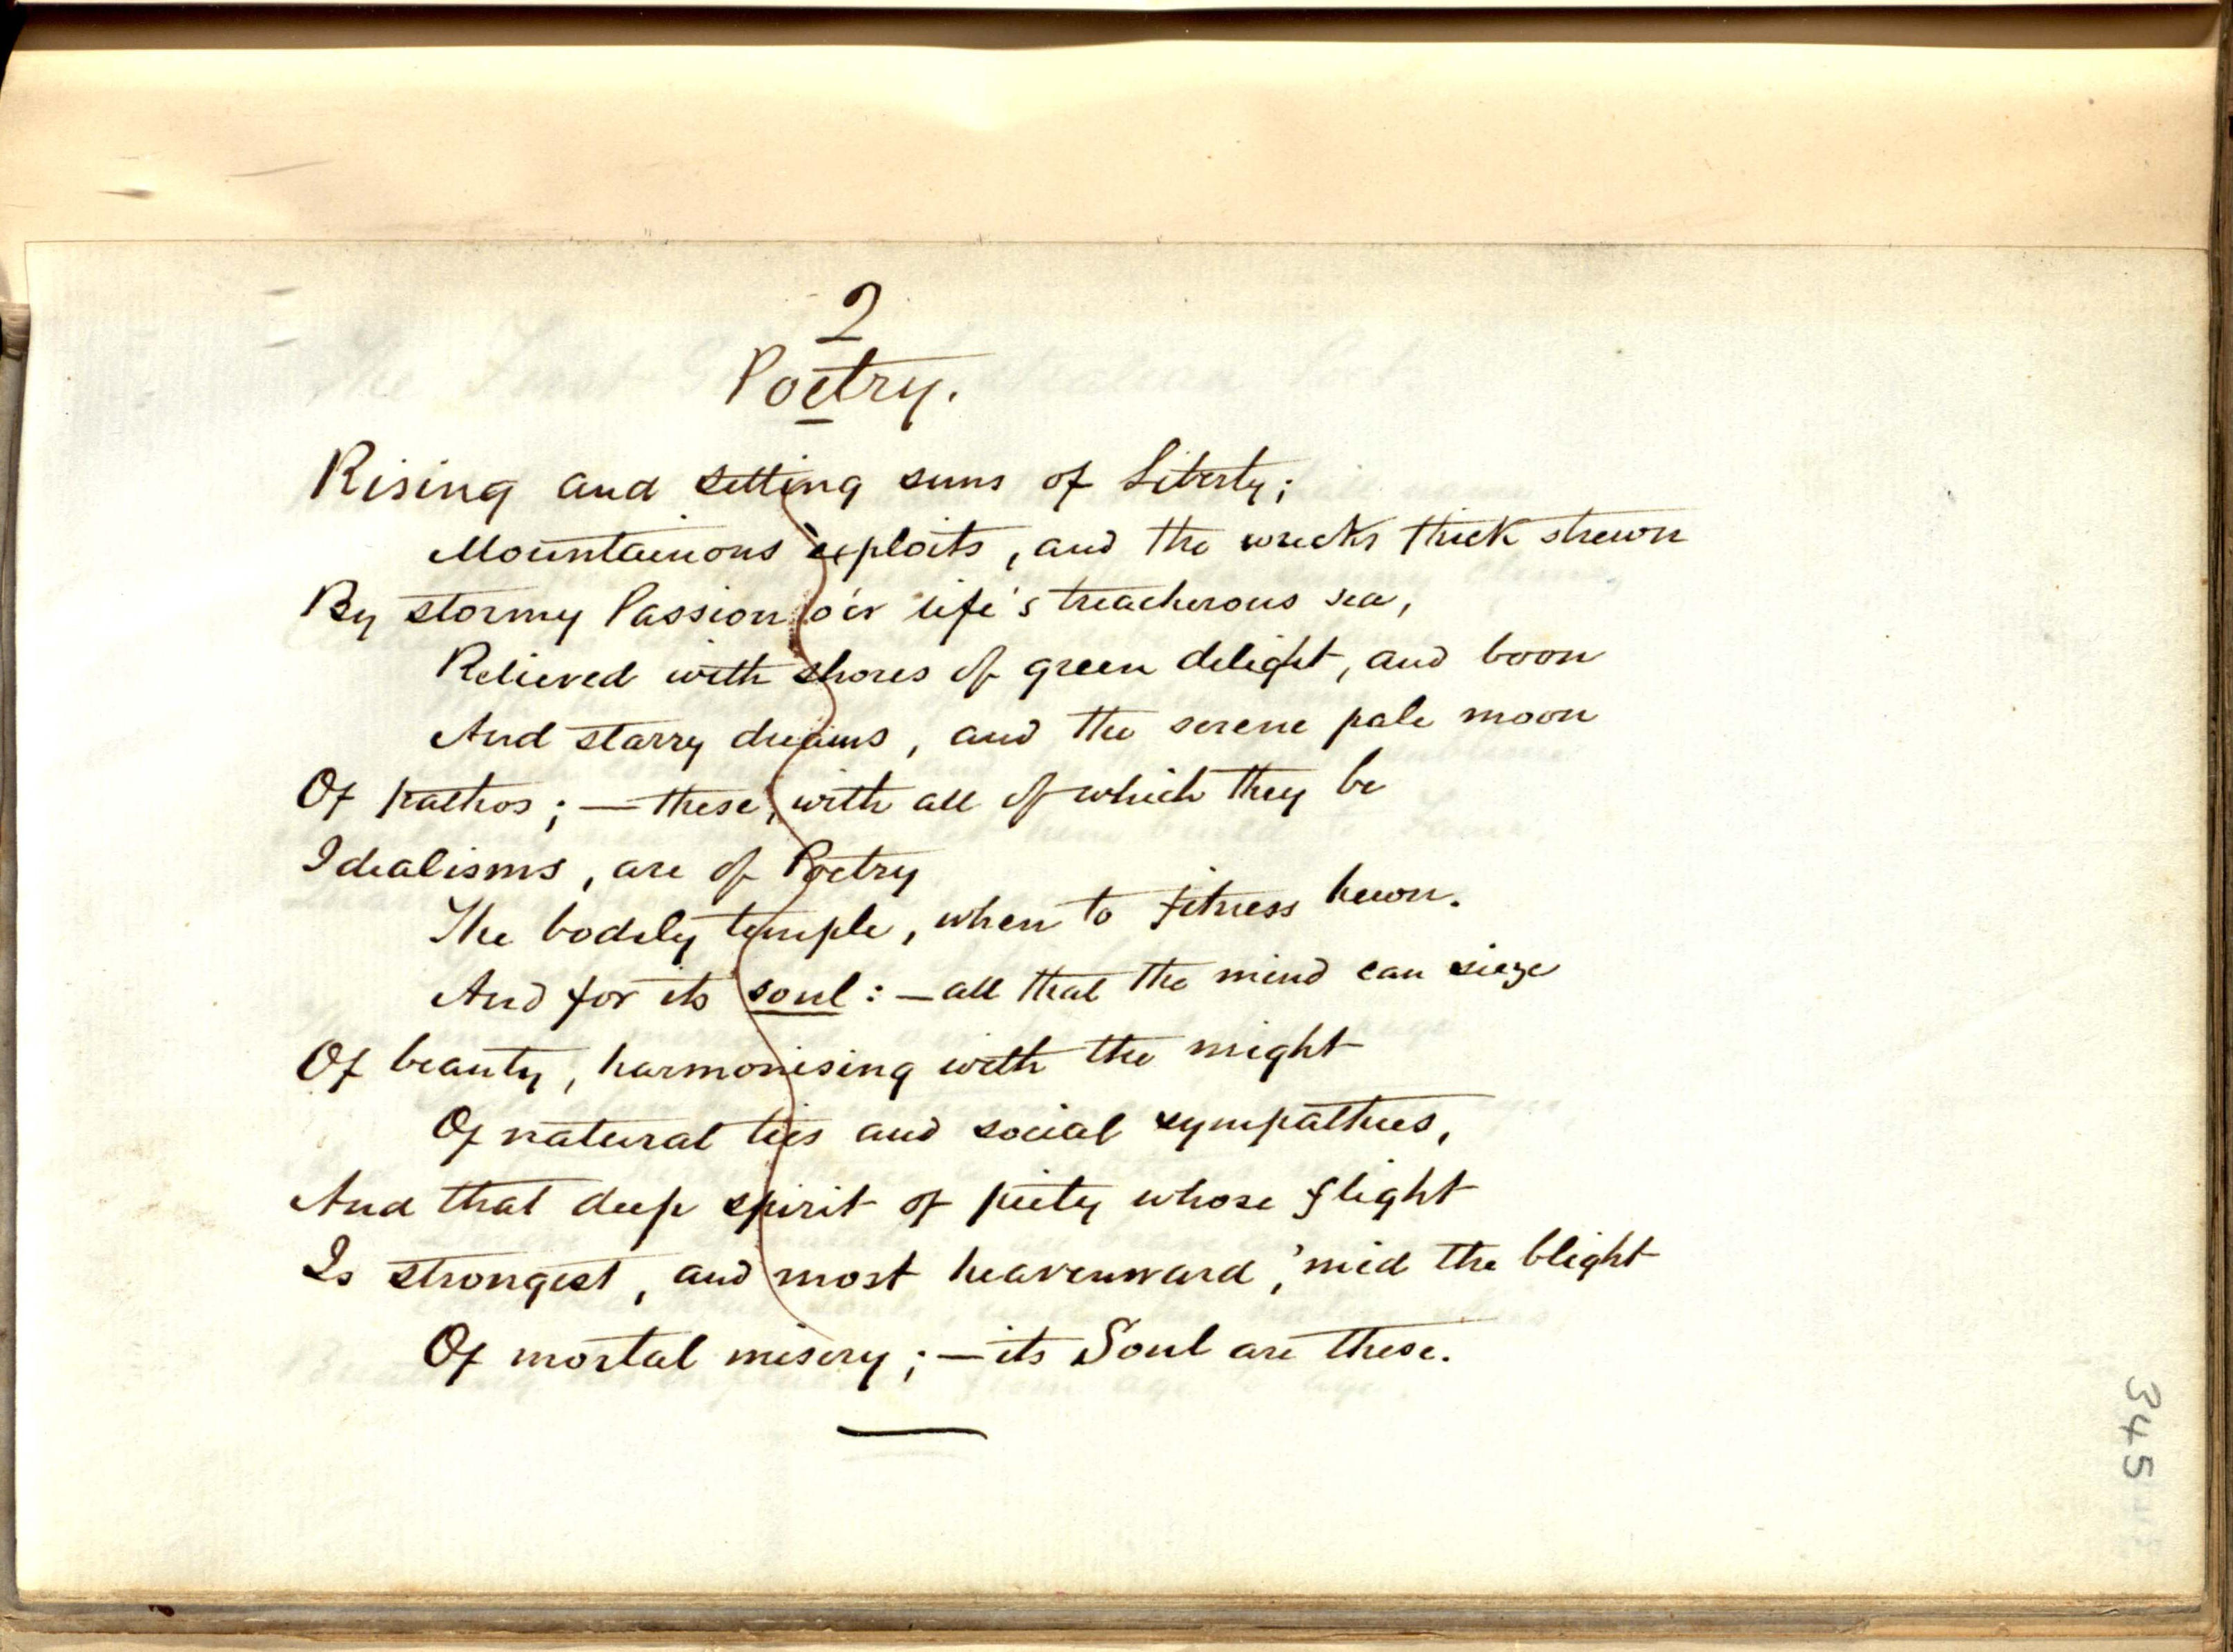 2
Poetry.
Rising and setting suns of Liberty;
Mountainous exploits, and the wrecks thick strewn
By stormy Passion o'er life's treacherous sea,
Relieved with shores of green delight, and boon
And starry dreams, and the serene pale moon
Of pathos; — these, with all of which they be
Idealisms, are of Poetry
The bodily temple, when to fitness hewn.
And for its soul: — all that the mind can sieze
Of beauty, harmonising with the might
Of natural ties and social sympathies,
And that deep spirit of piety whose flight
Is strongest, and most heavenward, 'mid the blight
Of mortal misery; — its Soul are these.
345